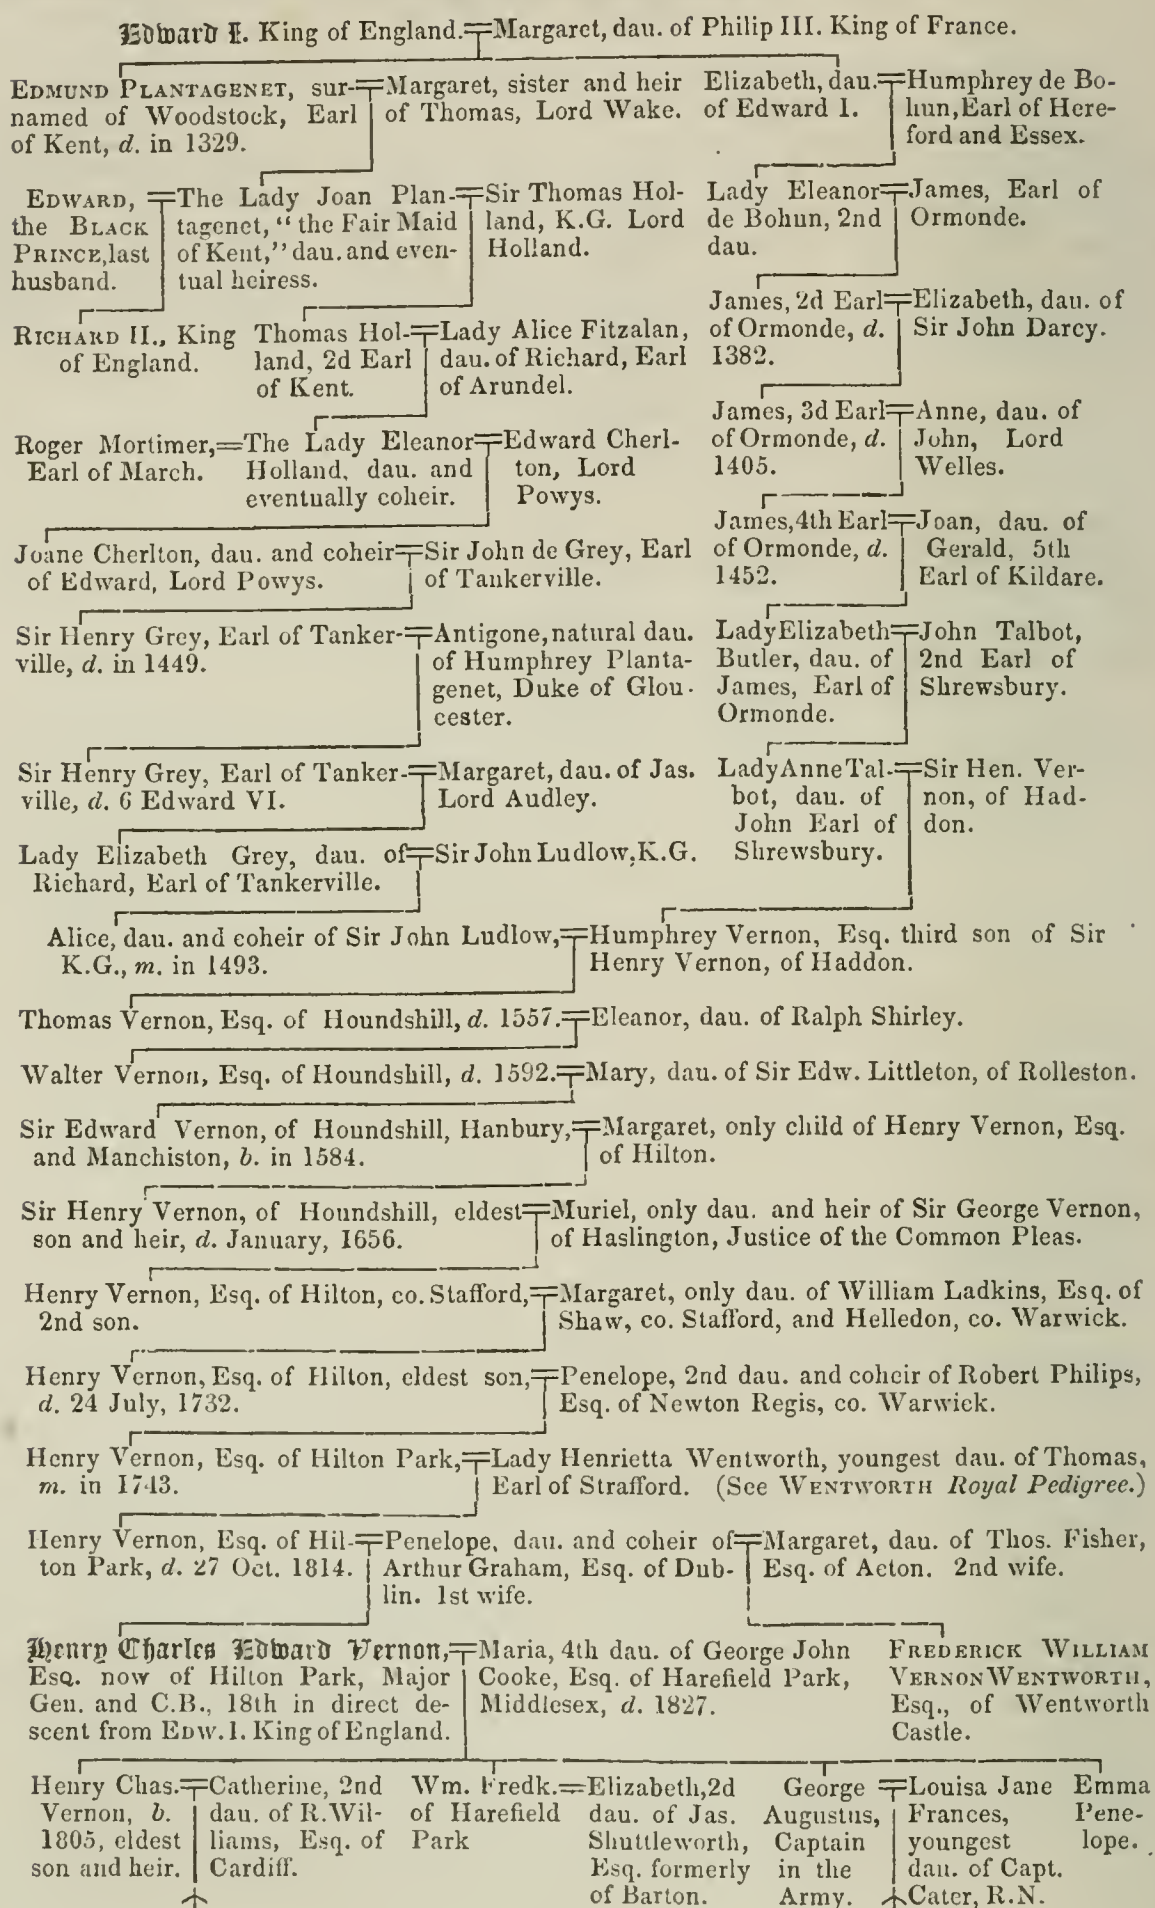 Edward I. King of England.=Margaret, dau. of Philip III. King of France.
EDMUND PLANTAGENET, sur-
named of Woodstock, Earl
of Kent, d. in 1329.
Margaret, sister and heir
of Thomas, Lord Wake.
Elizabeth, dau.
of Edward I.
Humphrey de Bo-
hun, Earl of Here-
ford and Essex.
EDWARD,
the BLACK
PRINCE, last
husband.
The Lady Joan Plan-
tagenet, "the Fair Maid
of Kent," dau. and even-
tual heiress.
Sir Thomas Hol-
land, K.G. Lord
Holland.
Lady Eleanor
de Bohun, 2nd
dau.
James, Earl of
Ormonde.
RICHARD II., King
of England.
Thomas Hol-
land, 2d Earl
of Kent.
Lady Alice Fitzalan,
dau. of Richard, Earl
of Arundel.
James, 2d Earl
of Ormonde, d.
1382.
Elizabeth, dau. of
Sir John Darcy.
Roger Mortimer,
Earl of March.
The Lady Eleanor
Holland, dau. and
eventually coheir.
Edward Cherl-
ton, Lord
Powys.
James, 3d Earl
of Ormonde, d.
1405.
Anne, dau. of
John, Lord
Welles.
Joane Cherlton, dau. and coheir
of Edward, Lord Powys.
Sir John de Grey, Earl
of Tankerville.
James, 4th Earl
of Ormonde, d.
1452.
Joan, dau. of
Gerald, 5th
Earl of Kildare.
Sir Henry Grey, Earl of Tanker-
ville, d. in 1449.
Antigone, natural dau.
of Humphrey Planta-
genet, Duke of Glou-
cester.
Lady Elizabeth
Butler, dau. of
James, Earl of
Ormonde.
John Talbot,
2nd Earl of
Shrewsbury.
Sir Henry Grey, Earl of Tanker-
ville, d. 6 Edward VI.
Margaret, dau. of Jas.
Lord Audley.
Lady Anne Tal-
bot, dau. of
John Earl of
Shrewsbury.
Sir Hen. Ver-
non, of Had-
don.
Lady Elizabeth Grey, dau. of
Richard, Earl of Tankerville.
Sir John Ludlow, K.G.
Alice, dau. and coheir of Sir John Ludlow,
K.G., m. in 1493.
Humphrey Vernon, Esq. third son of Sir
Henry Vernon, of Haddon.
Thomas Vernon, Esq. of Houndshill, d. 1557.=Eleanor, dau. of Ralph Shirley.
Walter Vernon, Esq. of Houndshill, d. 1592.=Mary, dau. of Sir Edw. Littleton, of Rolleston.
Sir Edward Vernon, of Houndshill, Hanbury,
and Manchiston, b. in 1584.
Margaret, only child of Henry Vernon, Esq.
of Hilton.
Sir Henry Vernon, of Houndshill, eldest
son and heir, d. January, 1656.
Muriel, only dau. and heir of Sir George Vernon,
of Haslington, Justice of the Common Pleas.
Henry Vernon, Esq. of Hilton, co. Stafford,
2nd son.
Margaret, only dau. of William Ladkins, Esq. of
Shaw, co. Stafford, and Helledon, co. Warwick.
Henry Vernon, Esq. of Hilton, eldest son,
d. 24 July, 1732.
Penelope, 2nd dau. and coheir of Robert Philips,
Esq. of Newton Regis, co. Warwick.
Henry Vernon, Esq. of Hilton Park,
m. in 1743.
Lady Henrietta Wentworth, youngest dau. of Thomas,
Earl of Strafford. (See WENTWORTH Royal Pedigree.)
Henry Vernon, Esq. of Hil-
ton Park, d. 27 Oct. 1814.
Penelope, dau. and coheir of
Arthur Graham, Esq. of Dub-
lin. 1st wife.
Margaret, dau. of Thos. Fisher,
Esq. of Acton. 2nd wife.
Henry Charles Edward Vernon,
Esq. now of Hilton Park, Major
Gen. and C.B., 18th in direct de-
scent from EDW. I. King of England.
Maria, 4th dau. of George John
Cooke, Esq. of Harefield Park,
Middlesex, d. 1827.
FREDERICK WILLIAM
VERNON WENTWORTH,
Esq., of Wentworth
Castle.
Henry Chas.
Vernon, b.
1805, eldest
son and heir.
Catherine, 2nd
dau. of R. Wil-
liams, Esq. of
Cardiff.
Wm. Fredk.
of Harefield
Park
Elizabeth, 2d
dau. of Jas.
Shuttleworth,
Esq. formerly
of Barton.
George
Augustus,
Captain
in the
Army.
Louisa Jane
Frances,
youngest
dau. of Capt.
Cater, R.N.
Emma
Pene-
lope.